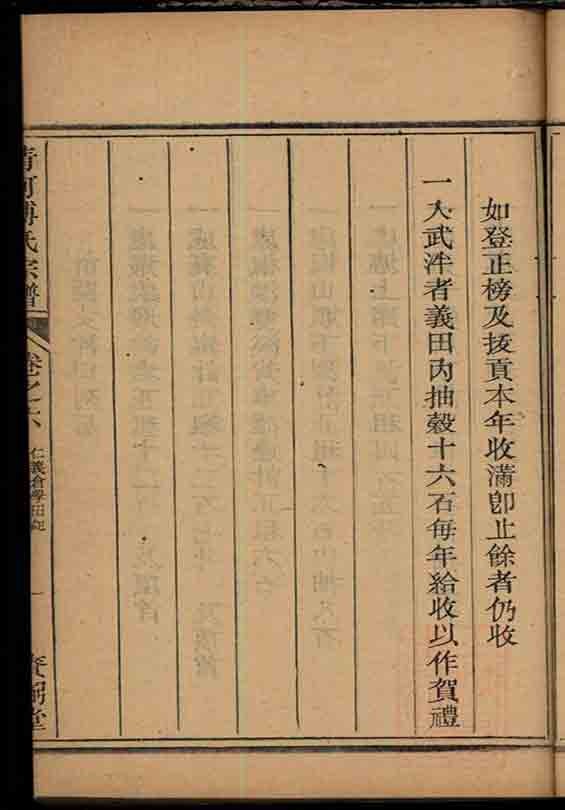 如登正榜及拔貢本年收滿即止餘者仍收
一入武泮者義田內抽穀十六石每年給收以作賀禮
清河傅氏宗譜
卷之六
仁義倉學田記
一
堂